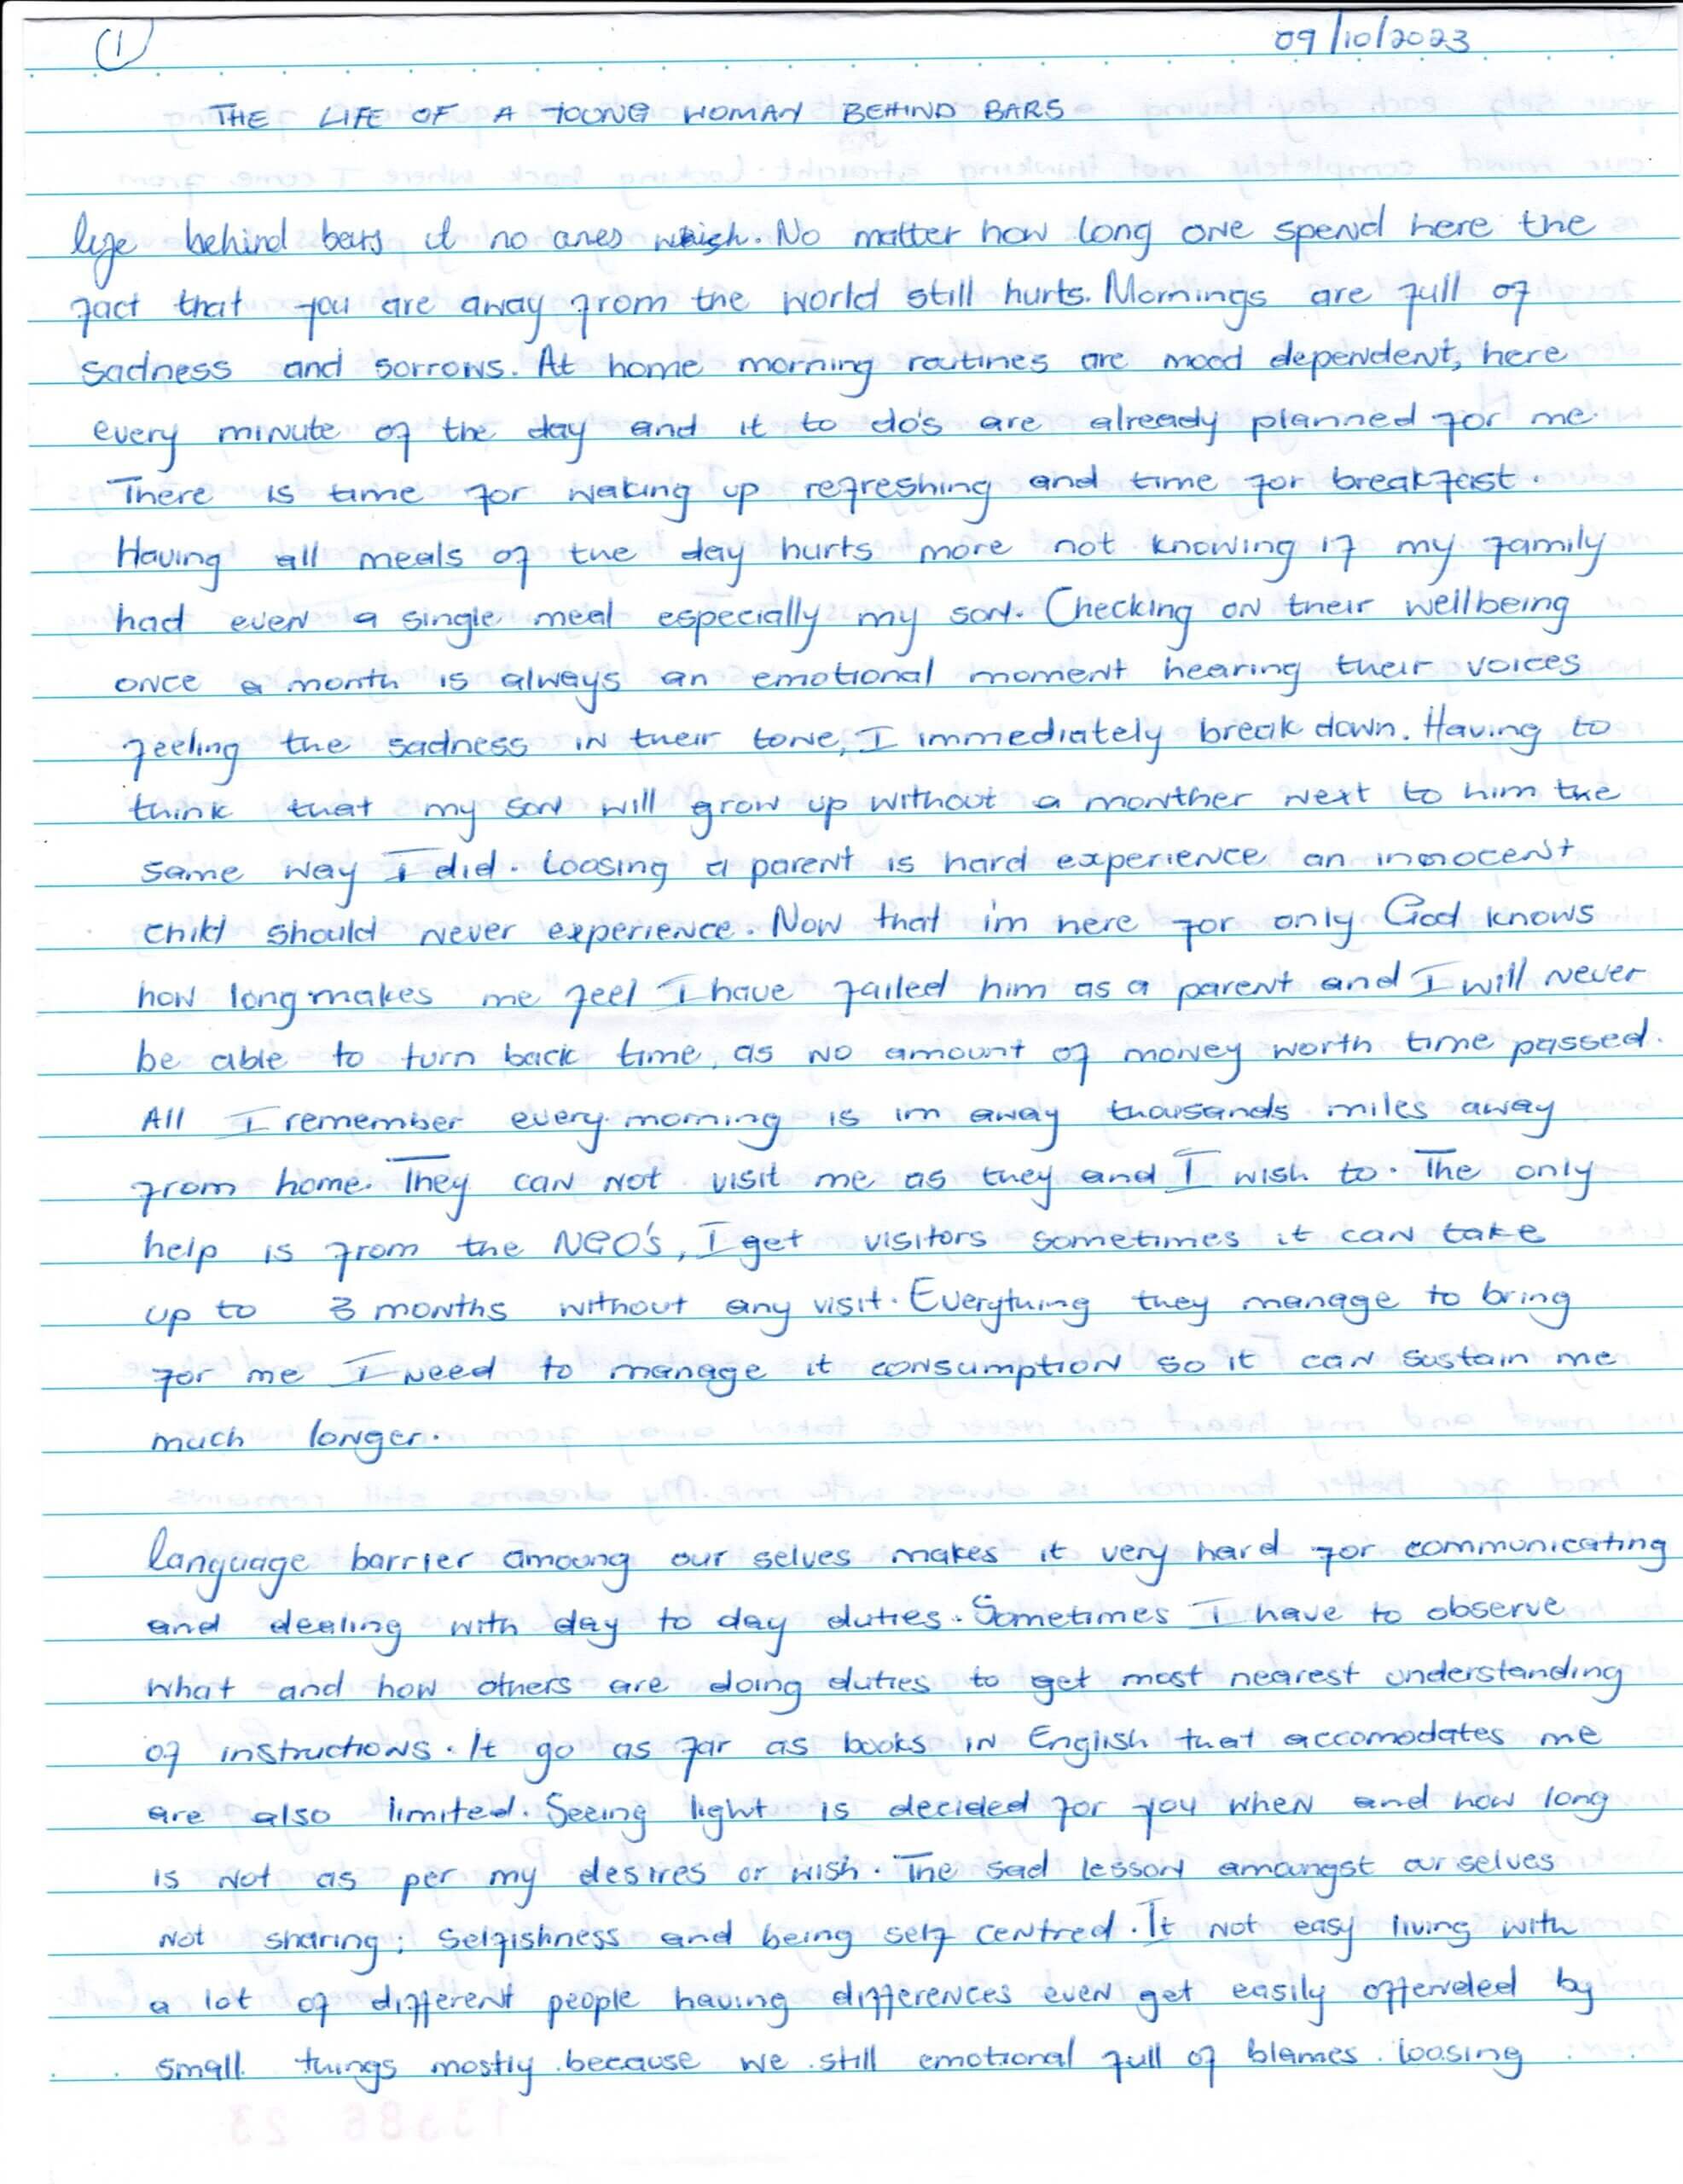 (1) 09/10/2023
THE LIFE OF A YOUNG WOMAN BEHIND BARS
life behind bars it no ones whish. No matter how long one spend here the
fact that you are away from the world still hurts. Mornings are full of
sadness and sorrows. At home morning routines are mood dependent, here
every minute of the day and it to do's are already planned for me.
There is time for waking up refreshing and time for breakfast.
Having all meals of the day hurts more not knowing if my family
had even a single meal especially my son. Checking on their wellbeing
once a month is always an emotional moment hearing their voices
feeling the sadness in their tone, I immediately break down. Having to
think that my son will grow up without a monther next to him the
same way I did. Loosing a parent is hard experience an innocent
child should never experience. Now that im here for only God knows
how long makes me feel I have failed him as a parent and I will never
be able to turn back time, as no amount of money worth time passed.
All I remember every morning is im away thousands miles away
from home. They can not visit me as they and I wish to. The only
help is from the NGO's, I get visitors sometimes it can take
up to 3 months without any visit. Everything they manage to bring
for me I need to manage it consumption so it can sustain me
much longer.
language barrier amoung our selves makes it very hard for communicating
and dealing with day to day duties. Sometimes I have to observe
what and how others are doing duties to get most nearest understanding
of instructions. It go as far as books in English that accomodates me
are also limited. Seeing light is decided for you when and how long
is not as per my desires or wish. The sad lesson amoungst our selves
not sharing; selfishness and being self centred. It not easy living with
a lot of different people having differences even get easily offended by
small things mostly because we still emotional full of blames. loosing